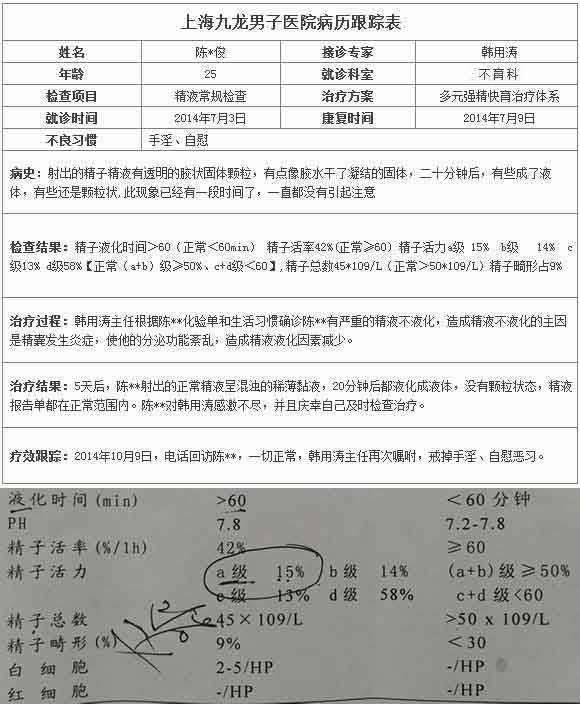 上海九龙男子医院病历跟踪表
姓名 陈*俊 接诊专家 韩用涛
年龄 25 就诊科室 不育科
检查项目 精液常规检查 治疗方案 多元强精快育治疗体系
就诊时间 2014年7月3日 康复时间 2014年7月9日
不良习惯 手淫、自慰
病史：射出的精子精液有透明的胶状固体颗粒，有点像胶水干了凝结的固体，二十分钟后，有些成了液
体，有些还是颗粒状,此现象已经有一段时间了，一直都没有引起注意
检查结果：精子液化时间>60（正常＜60min） 精子活率42%(正常≥60) 精子活力a级 15% b级 14% c
级13% d级58%【正常（a+b）级≥50%、c+d级＜60】,精子总数45*109/L（正常>50*109/L）精子畸形占9%
治疗过程：韩用涛主任根据陈**化验单和生活习惯确诊陈**有严重的精液不液化，造成精液不液化的主因
是精囊发生炎症，使他的分泌功能紊乱，造成精液液化因素减少。
治疗结果：5天后，陈**射出的正常精液呈混浊的稀薄黏液，20分钟后都液化成液体，没有颗粒状态，精液
报告单都在正常范围内。陈**对韩用涛感激不尽，并且庆幸自己及时检查治疗。
疗效跟踪：2014年10月9日，电话回访陈**，一切正常，韩用涛主任再次嘱咐，戒掉手淫、自慰恶习。
液化时间(min) >60 ＜60分钟
PH 7.8 7.2-7.8
精子活率(%/1h) 42% ≥60
精子活力 a级 15% b级 14% (a+b)级≥50%
c级 13% d级 58% c+d级<60
精子总数 45×109/L >50 x 109/L
精子畸形(%) 9% ＜30
白细胞 2-5/HP -/HP
红细胞 -/HP -/HP